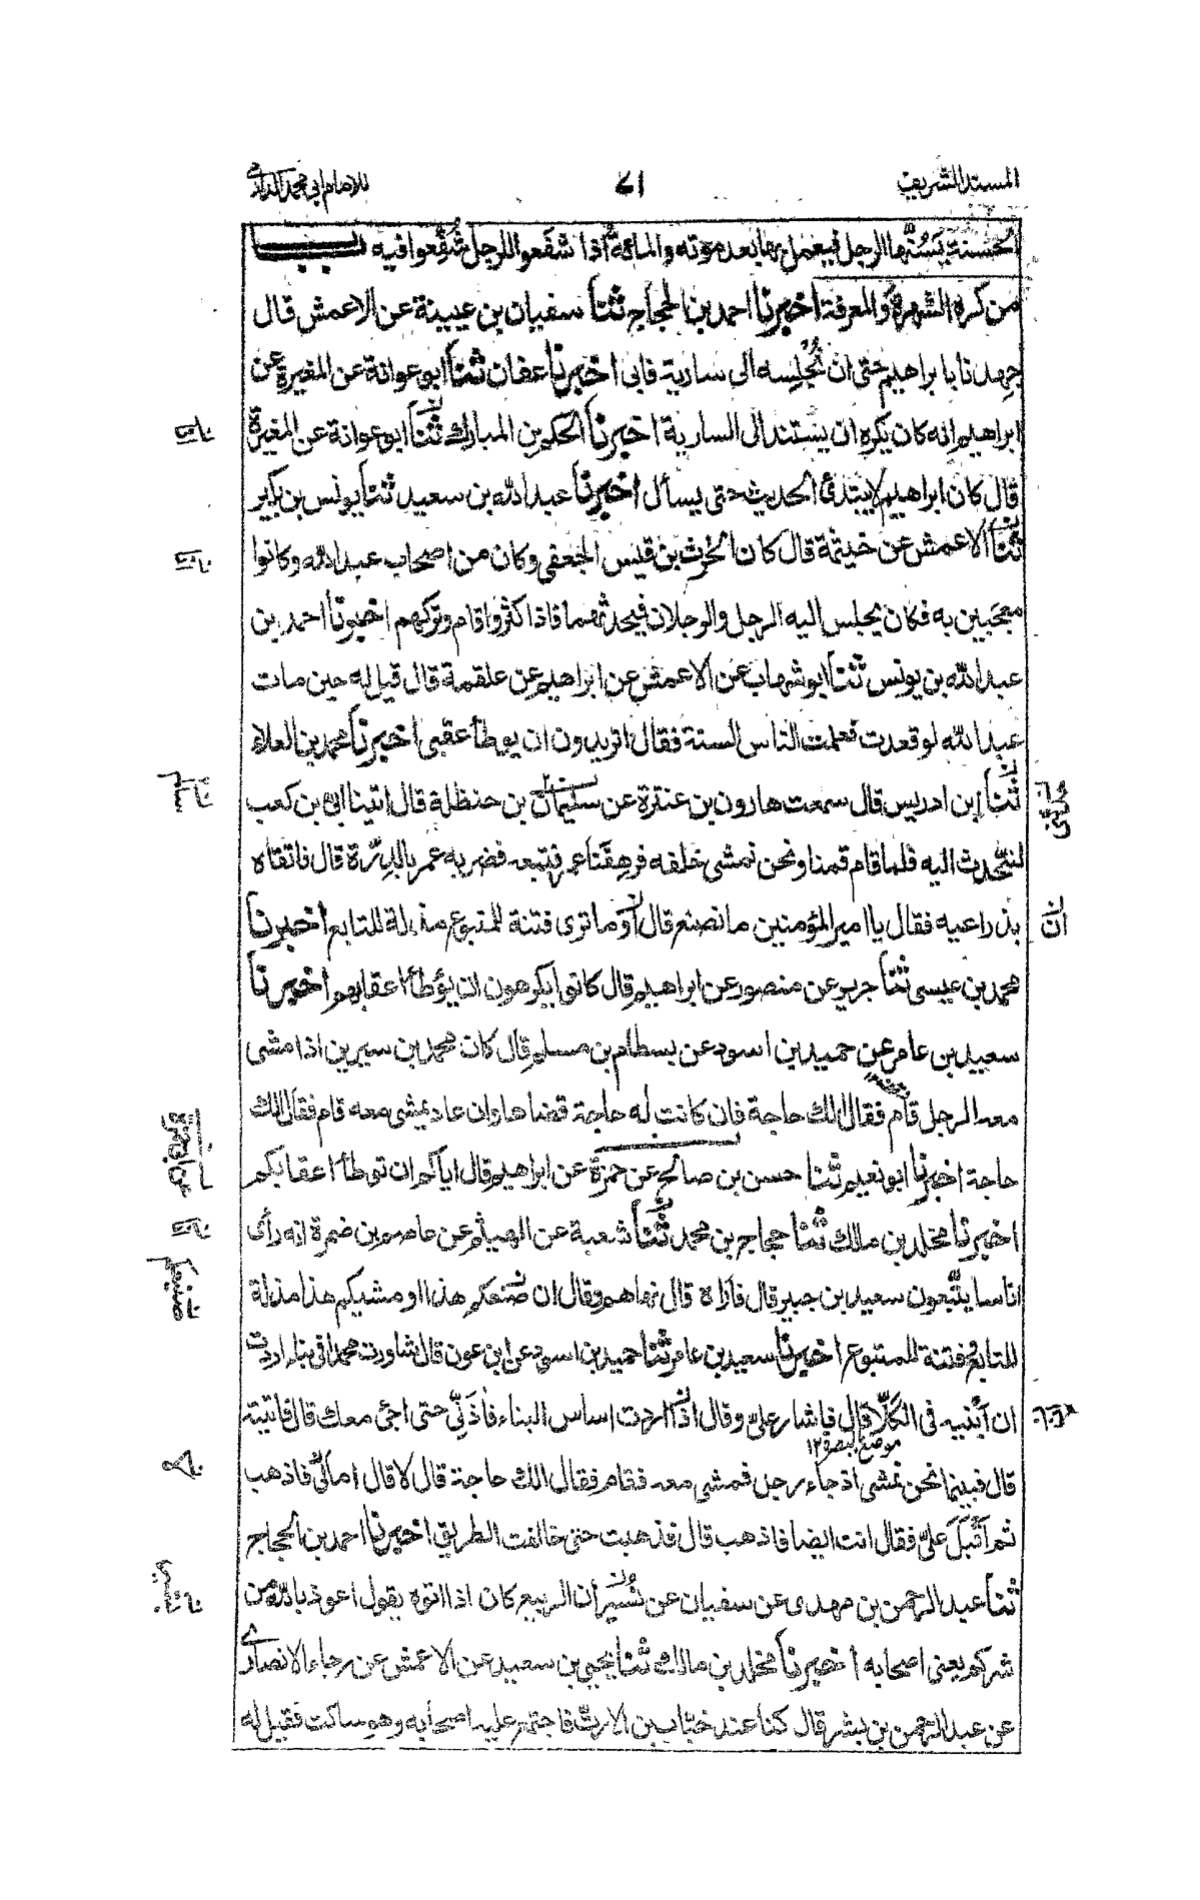 المسند الشريف ٧١ للامام ابي محمد الدارمي
الحسنة يَسُنُّها الرجل فيعمل بها بعد موته والمائة اذا شفعوا للرجل شُفِّعوا فيه بــــاب
من كره الشهرة والمعرفة اخبرنا احمد بن الحجاج ثنا سفيان بن عيينة عن الاعمش قال
جهدنا بابراهيم حتى ان نُجْلِسه الى سارية فابى اخبرنا عفان ثنا ابو عوانة عن المغيرة عن
ابراهيم انه كان يكره ان يستند الى السارية اخبرنا الحكم بن المبارك ثنا ابو عوانة عن المغيرة
قال كان ابراهيم لا يبتدئ الحديث حتى يسأل اخبرنا عبد الله بن سعيد ثنا يونس بن بكير
ثنا الاعمش عن خيثمة قال كان الحرث بن قيس الجعفي وكان من اصحاب عبد الله وكانوا
معجبين به فكان يجلس اليه الرجل والرجلان فيحدثهما فاذا كثروا قام وتركهم اخبرنا احمد بن
عبد الله بن يونس ثنا ابو شهاب عن الاعمش عن ابراهيم عن علقمة قال قيل له حين مات
عبد الله لو قعدت فعلمت الناس السنة فقال اتريدون ان يوطأ عقبي اخبرنا محمد بن العلاء
ثنا ابن ادريس قال سمعت هارون بن عنترة عن سليمان بن حنظلة قال اتينا ابي بن كعب
لنتحدث اليه فلما قام قمنا ونحن نمشى خلفه فرهِقَنا عمر فتبعه فضربه عمر بالدِرَّة قال فاتقاه
بذراعيه فقال يا امير المؤمنين ما تصنع قال أوَ ما ترى فتنة للمتبوع مذلة للتابع اخبرنا
ان
محمد بن عيسى ثنا جرير عن منصور عن ابراهيم قال كانوا يكرهون ان يوطأ اعقابهم اخبرنا
سعيد بن عامر عن حميد بن اسود عن بسطام بن مسلم قال كان محمد بن سيرين اذا مشى
معه الرجل قام فقال الك حاجة فان كانت له حاجة قضاها وان عاد يمشى معه قام فقال الك
حاجة اخبرنا ابو نعيم ثنا حسن بن صالح عن حمزة عن ابراهيم قال اياكم ان توطأ اعقابكم
عن ابي حمزة
اخبرنا مخلد بن مالك ثنا حجاج بن محمد ثنا شعبة عن الهيثم عن عاصم بن ضمرة انه رأى
اناسا يتّبعون سعيد بن جبير قال فأراه قال نهاهم وقال ان صنعكم هذا او مشيكم هذا مذلة
صنيعكم
للتابع وفتنة للمتبوع اخبرنا سعيد بن عامر ثنا حميد بن اسود عن ابن عون قال شاورت محمدا في بناء اردت
ان أبنيه فى الكَلّا قال فاشار علىّ وقال اذا اردت اساس البناء فآذنّي حتى اجئ معك قال فاتيته
موضع بالبصرة ١٢
قال فبينما نحن نمشى اذ جاء رجل فمشى معه فقام فقال الك حاجة قال لا قال امالى فاذهب
ثم أقبَلَ علىّ فقال انت ايضا فاذهب قال فذهبت حتى خالفت الطريق اخبرنا احمد بن الحجاج
ثنا عبد الرحمن بن مهدى عن سفيان عن نُسَيْر أن الربيع كان اذا اتوه يقول اعوذ بالله من
شركم يعنى اصحابه اخبرنا مخلد بن مالك ثنا يحيى بن سعيد عن الاعمش عن رجاء الانصارى
عن عبد الرحمن بن بشر قال كنا عند خبّاب بن الارتّ فاجتمع عليه اصحابه وهو ساكت فقيل له